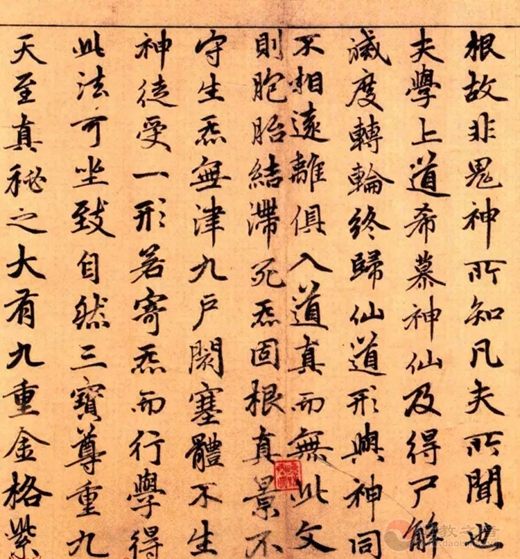 根故非鬼神所知凡夫所聞也
夫學上道希慕神仙及得尸解
滅度轉輪終歸仙道形與神同
不相遠離俱入道真而無此文
則胞胎結滯死炁固根真景不
守生炁無津九戶閉塞體不生
神徒受一形若寄炁而行學得
此法可坐致自然三寶尊重九
天至真秘之大有九重金格紫